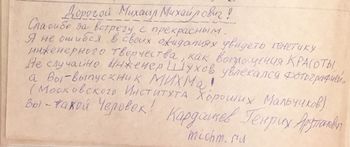 Дорогой Михаил Михайлович!
Спасибо за встречу с прекрасным.
Я не ошибся в своих ожиданиях увидеть генетику
инженерного творчества, как воплощения КРАСОТЫ
Не случайно инженер Шухов увлекался фотографией,
а Вы - выпускник МИХМа!
(Московского Института Хороших Мальчиков)
Вы - такой Человек!
Кардашев Генрих Арутюнович
michm.ru